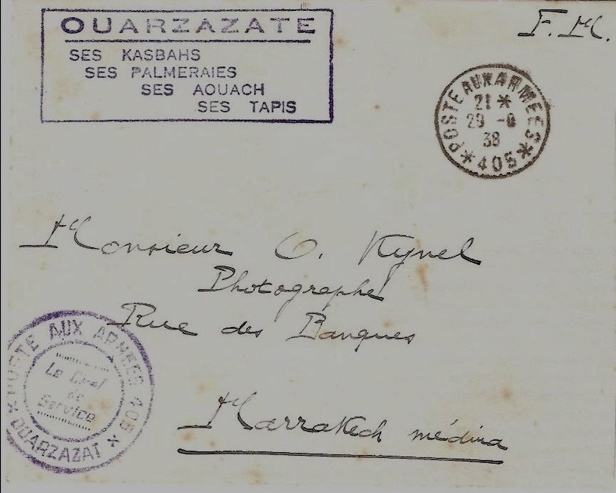 OUARZAZATE
SES KASBAHS
SES PALMERAIES
SES AOUACH
SES TAPIS
F. M.
POSTE AUX ARMEES
21 *
29 -8
38
* 405 *
Monsieur O. Kynel
Photographe
Rue des Banques
Marrakech médina
POSTE AUX ARMEES 405
Le
de
Service
* OUARZAZAT *